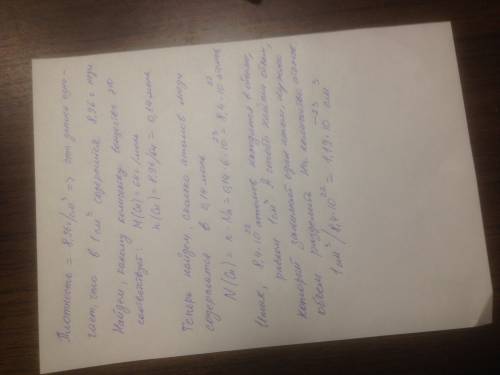 Плотность = 8,96 г/см³ => это значит озна-
чает, что в 1 см³ содержится 8,96 г меди
Найдем, какому количеству вещества это
соответствует: M(Cu) = 64 г/моль
n(Cu) = 8,96/64 = 0,14 моль
Теперь найдем, сколько атомов меди
содержится в 0,14 моль
N(Cu) = n · Na = 0,14 · 6 · 10²³ = 8,4 · 10²² атомов
Итак, 8,4 · 10²² атомов находится в объеме,
равном 1 см³. А чтобы найти объем,
который занимает один атом, нужно
объем разделить на количество атомов,
1 см³/8,4 · 10²² = 1,19 · 10⁻²³ см³